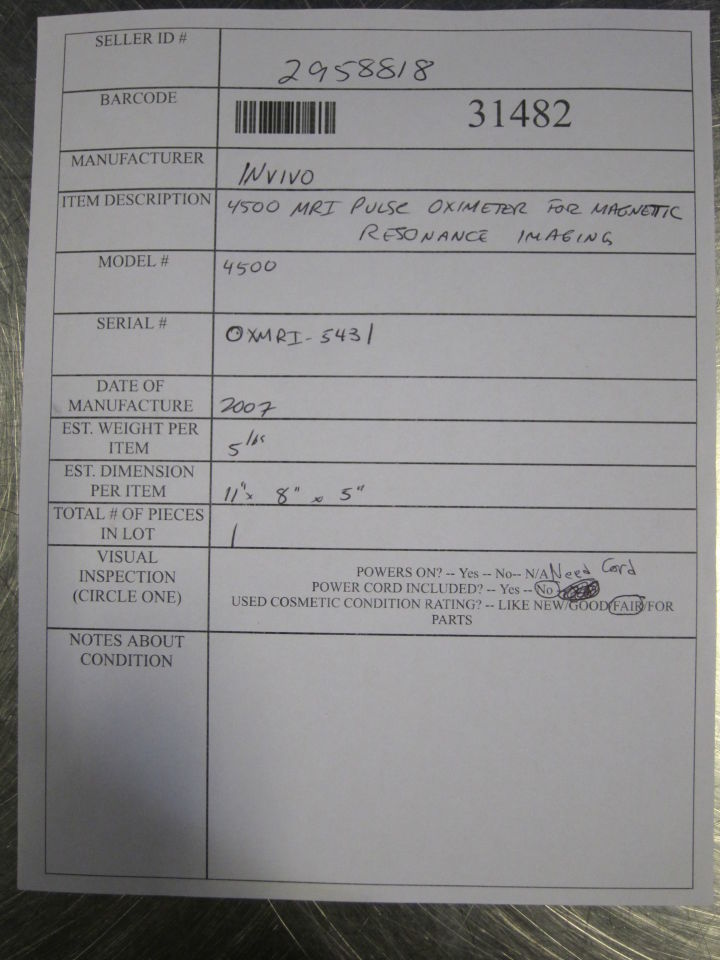 SELLER ID #
2958818
BARCODE
31482
MANUFACTURER
INVIVO
ITEM DESCRIPTION
4500 MRI PULSE OXIMETER FOR MAGNETIC
RESONANCE IMAGING
MODEL #
4500
SERIAL #
OXMRI-5431
DATE OF
MANUFACTURE
2007
EST. WEIGHT PER
ITEM
5 lbs
EST. DIMENSION
PER ITEM
11" x 8" x 5"
TOTAL # OF PIECES
IN LOT
1
VISUAL
INSPECTION
(CIRCLE ONE)
POWERS ON? -- Yes -- No-- N/A Need Cord
POWER CORD INCLUDED? -- Yes -- No
USED COSMETIC CONDITION RATING? -- LIKE NEW/GOOD/FAIR/FOR
PARTS
NOTES ABOUT
CONDITION